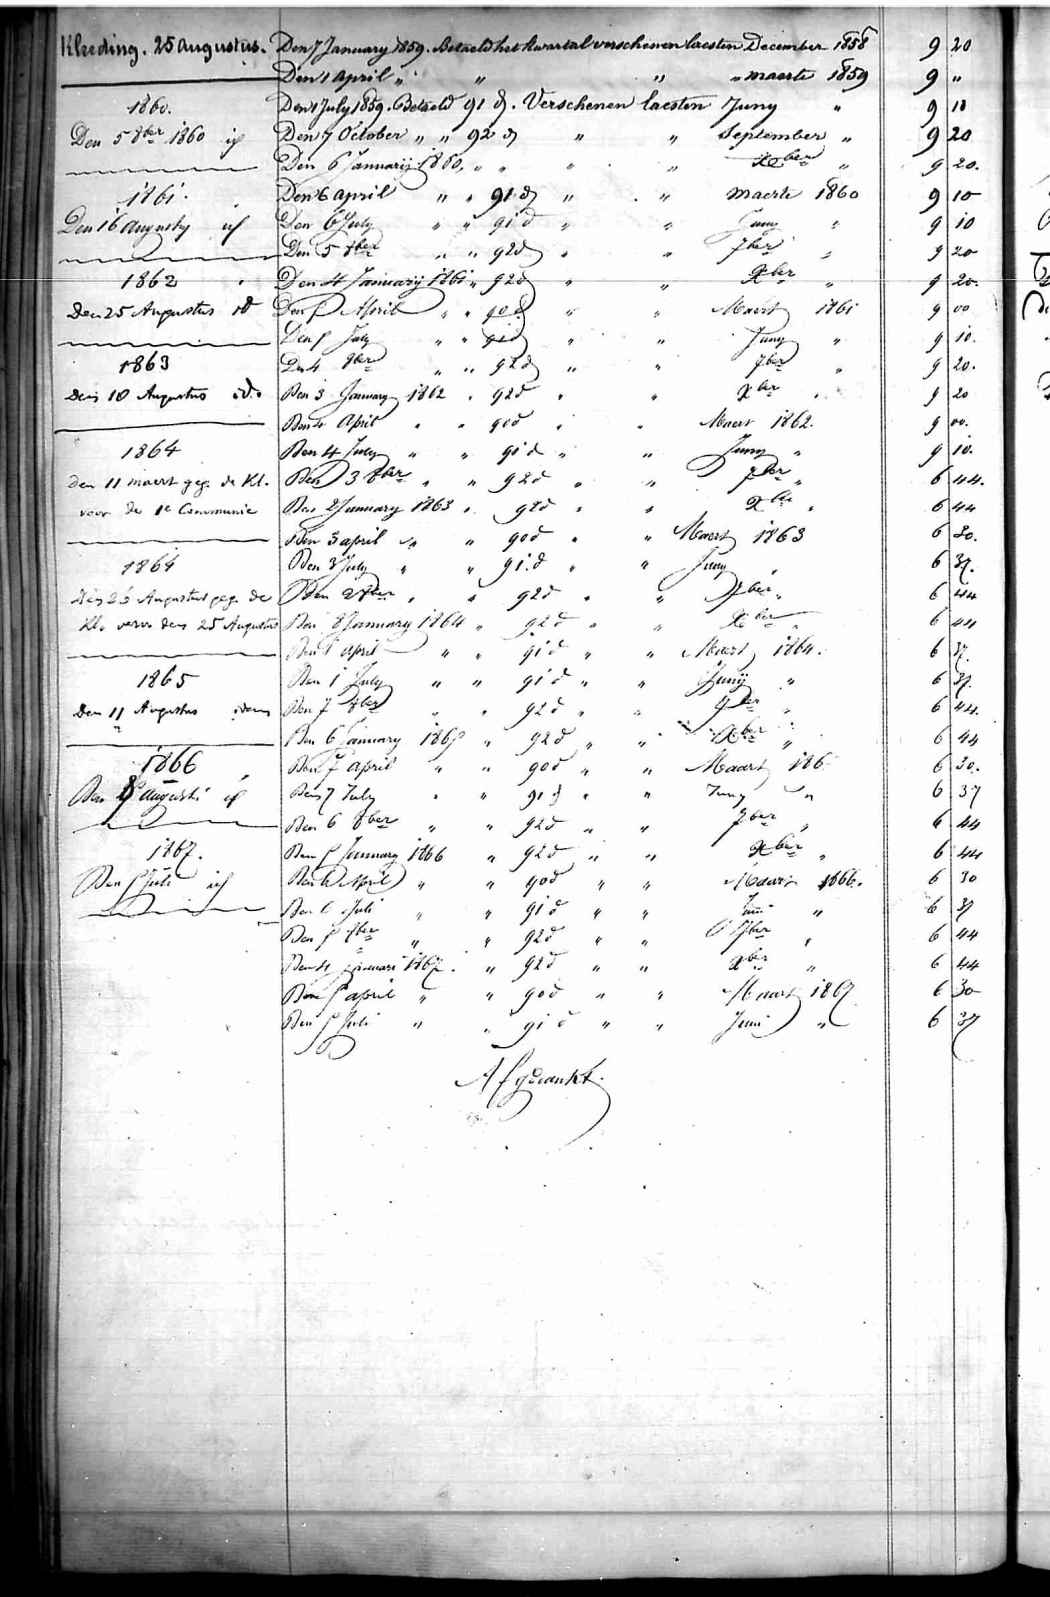 Kleeding. 25 Augustus.
1860.
Den 5 8ber 1860 if
1861.
Den 16 augusty if
1862
den 25 Augustus id
1863
den 10 Augustus ido
1864
den 11 maert geg. de Kl.
voor de 1e Communie
1864
den 25 Augustus geg. de
Kl. verv. den 25 Augustus
1865
Den 11 Augustus idem
1866
Den augusti if
1867.
Den Juli if
Den 7 January 1859. Betaeld het kwartal verschenen laesten December 1858 9 20
Den 1 April „ „ „ „ maerte 1859 9 „
Den 1 July 1859. Betaeld 91 d. Verschenen laesten Juny „ 9 10
Den 7 October „ „ 92 d „ „ September „ 9 20
Den 6 Januarij 1860, „ „ „ „ Xber „ 9 20.
Den 6 april „ „ 91 d „ „ maerte 1860 9 10
Den 6 July „ „ 91 d „ „ Juny „ 9 10
Den 5 8ber „ „ 92 d „ „ 7ber „ 9 20
Den 4 Januarij 1861 „ 92 d „ „ Xber „ 9 20.
Den April „ „ 90 d „ „ Maert 1861 9 00
Den July „ „ 91 d „ „ Juny „ 9 10.
Den 4 8ber „ „ 92 d „ „ 7ber „ 9 20.
Den 3 January 1862 „ 92 d „ „ Xber „ 9 20
Den 4 April „ „ 90 d „ „ Maert 1862. 9 00.
Den 4 July „ „ 91 d „ „ Juny „ 9 10.
Den 3 8ber „ „ 92 d „ „ 7ber „ 6 44.
Den 2 January 1863 „ 92 d „ „ Xber „ 6 44
Den 3 april „ „ 90 d „ „ Maert 1863 6 30.
Den 3 July „ „ 91 d „ „ Juny „ 6 37.
Den 2 8ber „ „ 92 d „ „ 7ber „ 6 44
Den January 1864 „ 92 d „ „ Xber „ 6 44
Den 1 april „ „ 91 d „ „ Maert 1864. 6 37.
Den 1 July „ „ 91 d „ „ Junij „ 6 37.
Den 7 8ber „ „ 92 d „ „ 7ber „ 6 44.
Den 6 January „ 92 d „ „ Xber „ 6 44
Den 7 april „ „ 90 d „ „ Maart 186 6 30.
Den 7 July „ „ 91 d „ „ Juny „ 6 37
Den 6 8ber „ „ 92 d „ „ 7ber „ 6 44
Den January 1866 „ 92 d „ „ Xber „ 6 44
Den 6 April „ „ 90 d „ „ Maart 1866. 6 30
Den 6 Juli „ „ 91 d „ „ Juni „ 6 37
Den 8ber „ „ 92 d „ „ 7ber „ 6 44
Den 4 januari 1867. „ 92 d „ „ Xber „ 6 44
Den april „ „ 90 d „ „ Maart 1867 6 30
Den Juli „ „ 91 d „ „ Juni „ 6 37
Afgedankt.